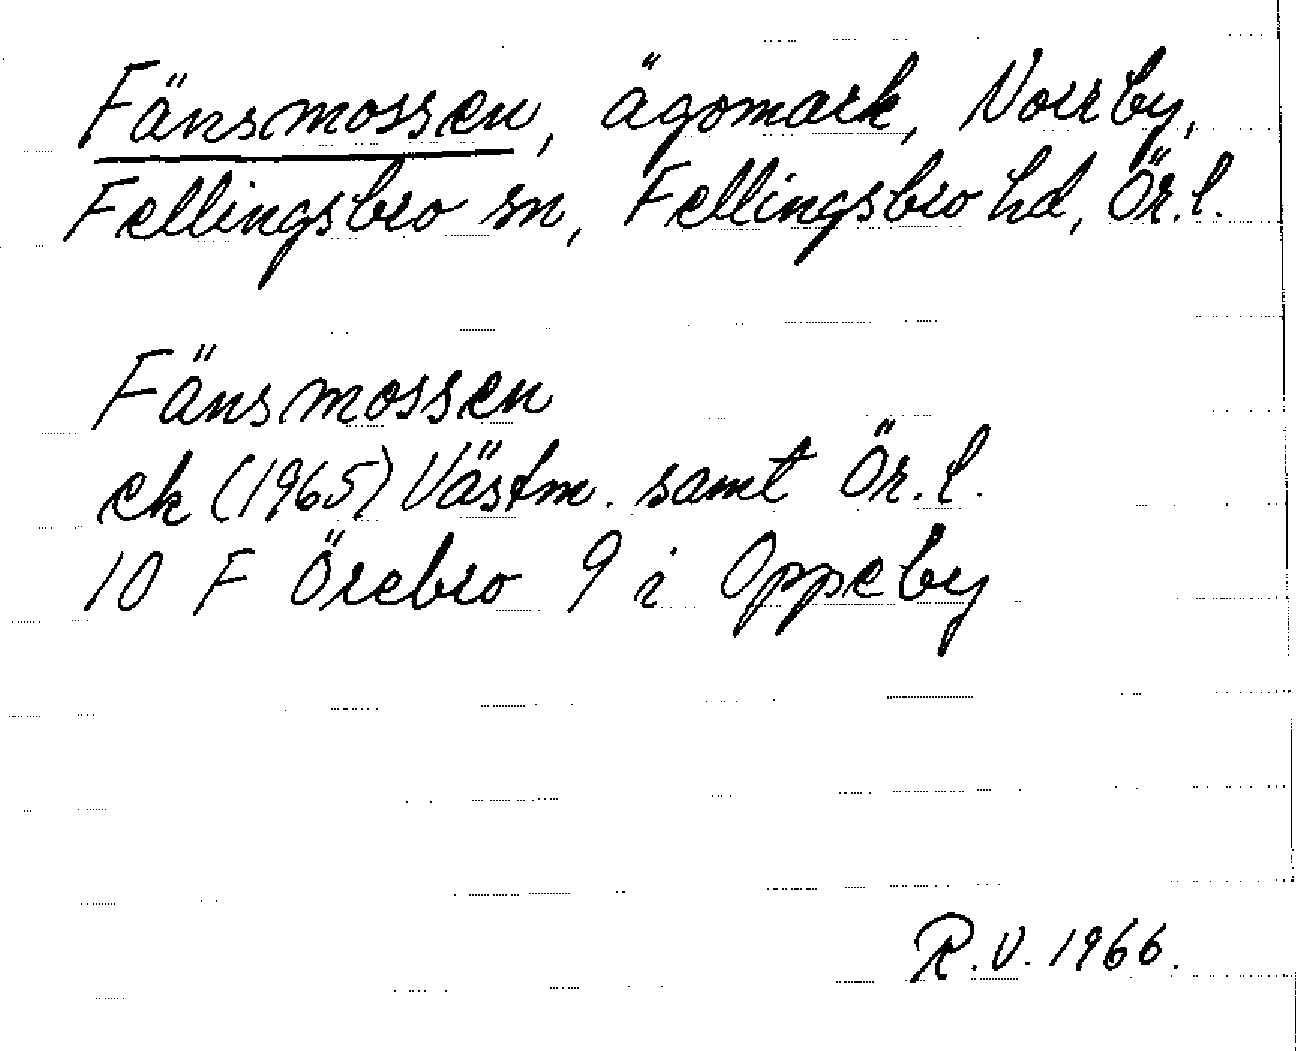 Fänsmossen, ägomark, Norrby,
Fellingsbro sn, Fellingsbro hd, Ör.l.
Fänsmossen
ek (1965) Västm. samt Ör.l.
10 F Örebro 9 i Oppeby
R.V. 1966.